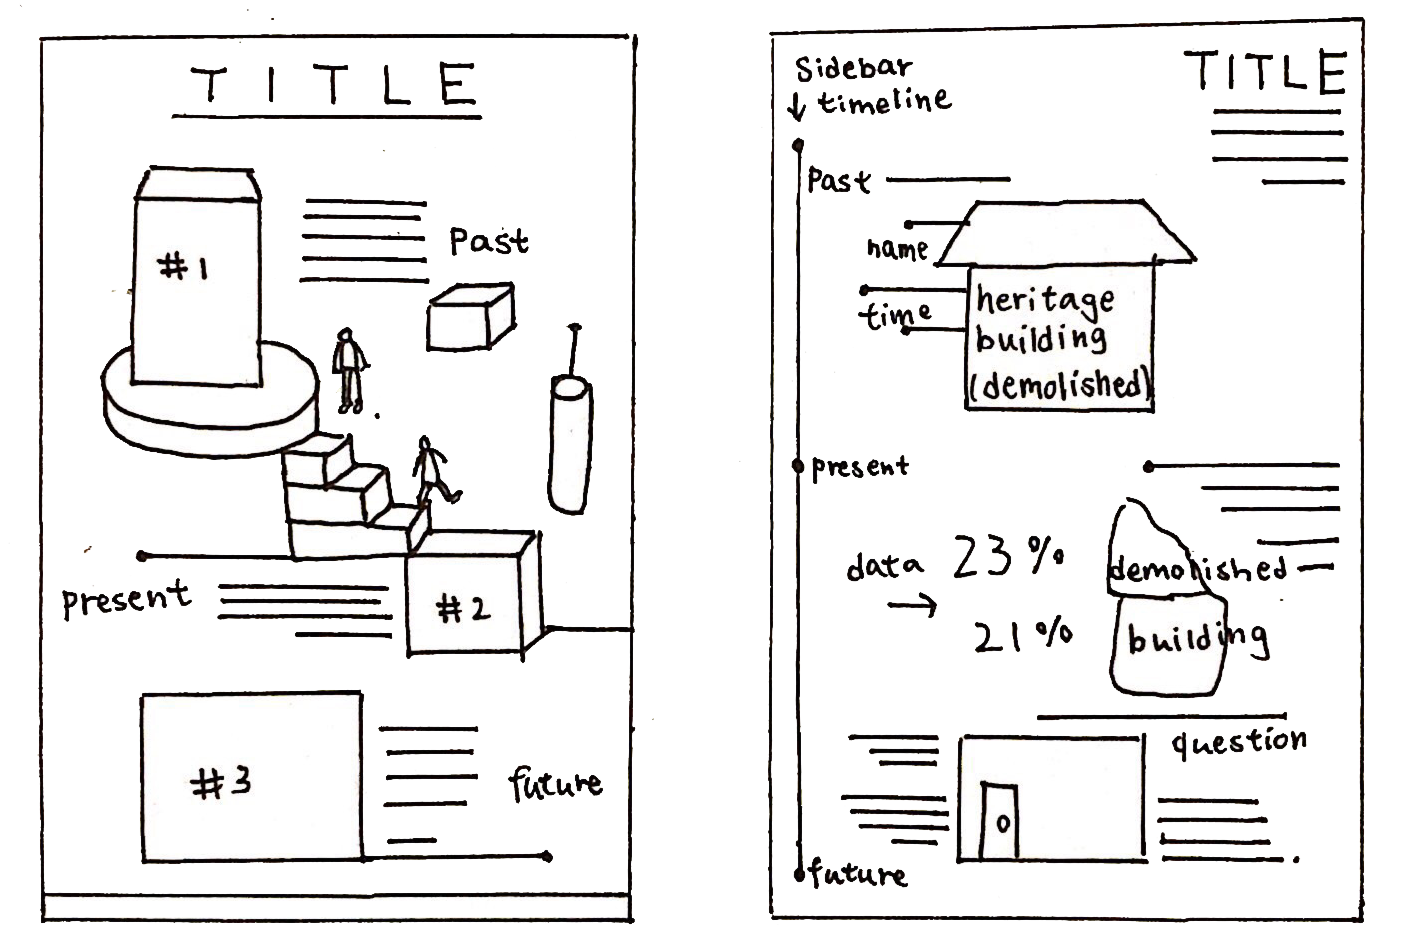 TITLE
#1
Past
present
#2
#3
future
Sidebar
timeline
TITLE
Past
name
time
heritage
building
(demolished)
present
data
23%
demolished
21%
building
question
future